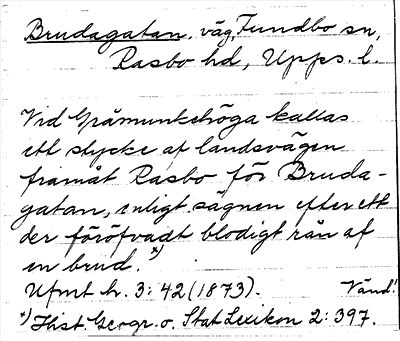 Brudagatan, väg, Fundbo sn,
Rasbo hd, Upps. l.
Vid Gråmunkehöga kallas
ett stycke af landsvägen
framåt Rasbo för Bruda-
gatan, enligt sägnen efter ett
der föröfvadt blodigt rån af
en brud. *)
Ufmt h. 3: 42 (1873). Vänd!
*) Hist. Geogr. o. Stat Lexikon 2: 397.